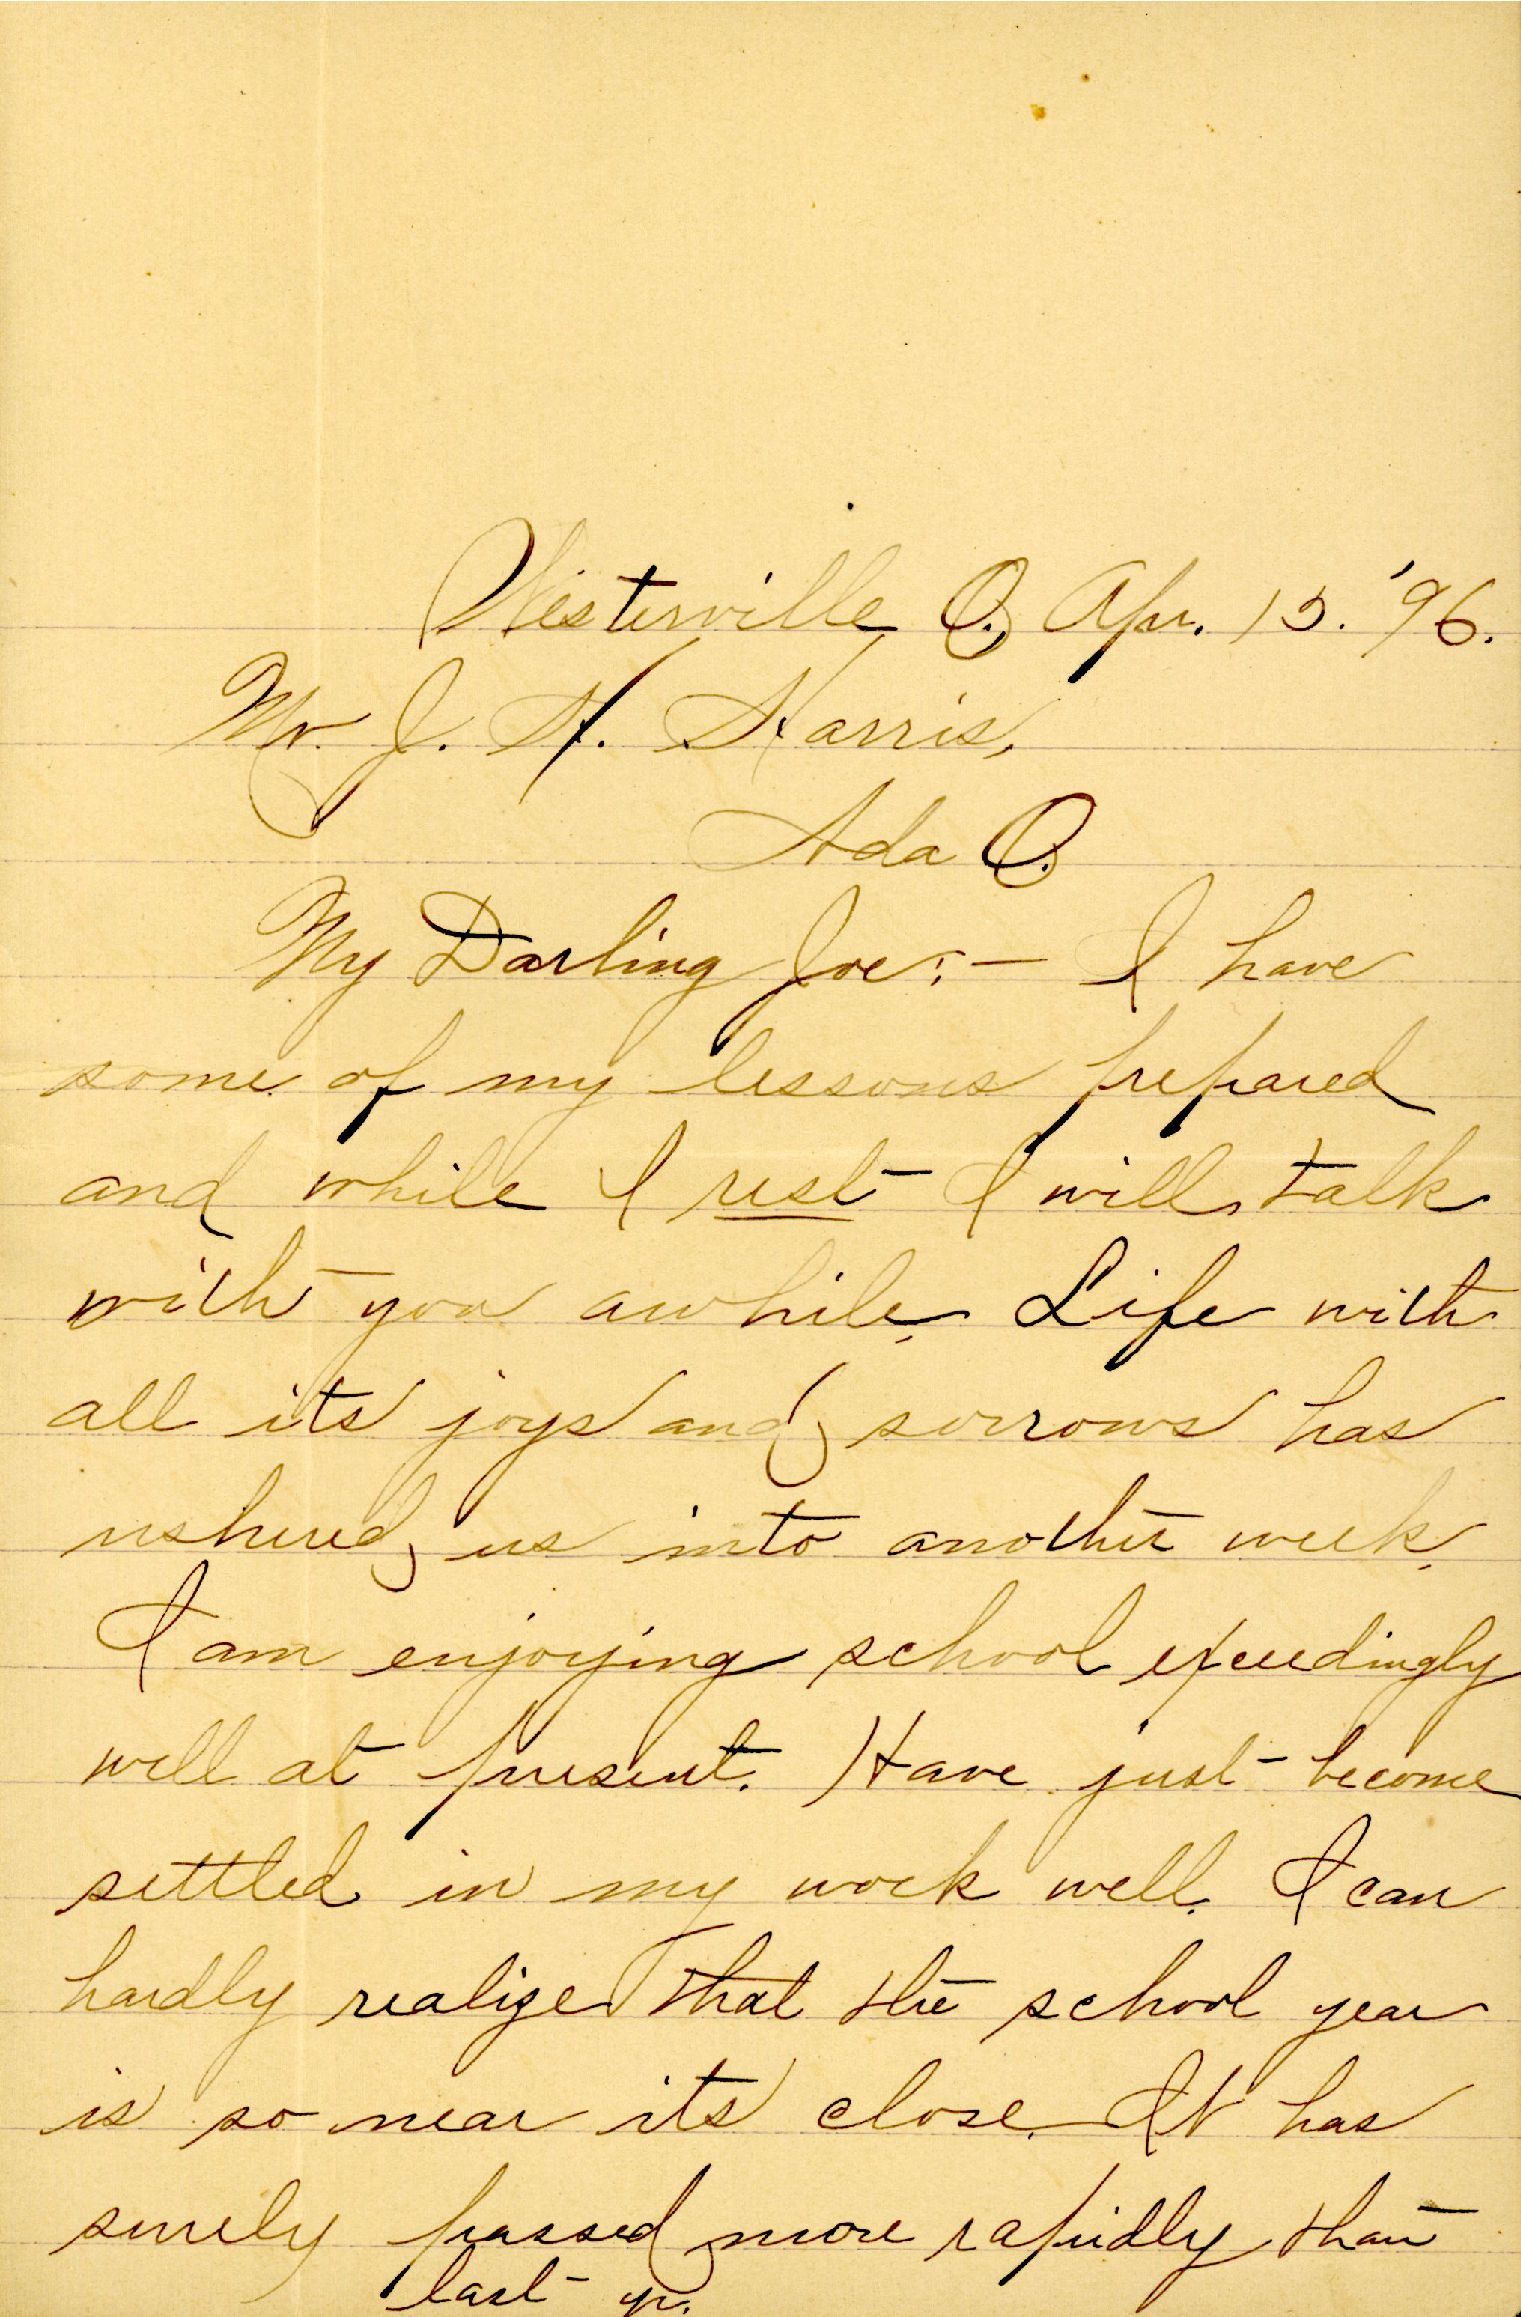 Westerville O., Apr. 15. '96.
Mr. J. H. Harris,
Ada O.
My Darling Joe:— I have
some of my lessons prepared
and while I rest I will talk
with you awhile. Life with
all its joys and sorrows has
ushered us into another week.
I am enjoying school exceedingly
well at present. Have just become
settled in my work well. I can
hardly realize that the school year
is so near its close. It has
surely passed more rapidly than
last yr.